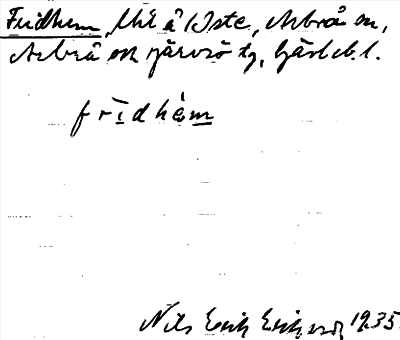 Fridhem, lht å Öste, Arbrå sn,
Arbrå och Järvsö tg, Gävleb. l.
frīdhé̱m̱
Nils Erik Eriksson 1935